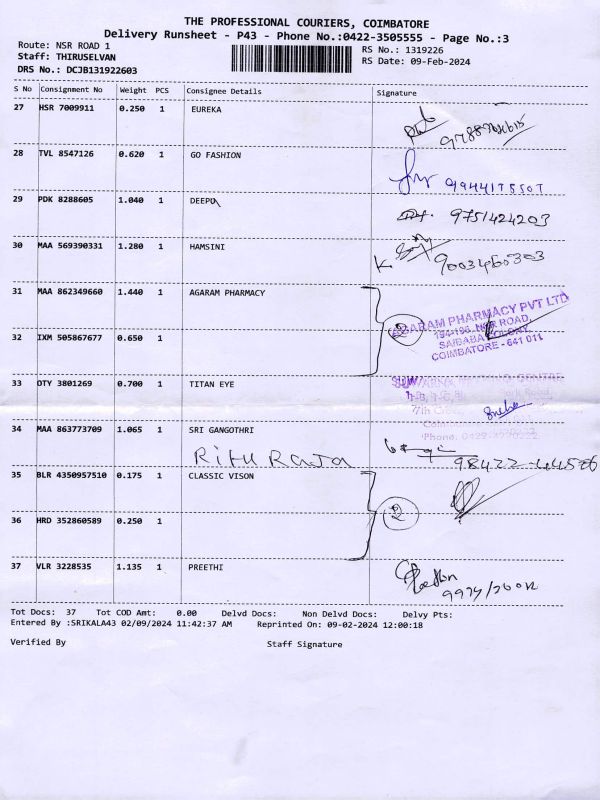 THE PROFESSIONAL COURIERS, COIMBATORE
Delivery Runsheet - P43 - Phone No.:0422-3505555 - Page No.:3
Route: NSR ROAD 1
Staff: THIRUSELVAN
DRS No.: DCJB131922603
RS No.: 1319226
RS Date: 09-Feb-2024
S No Consignment No Weight PCS Consignee Details Signature
27 HSR 7009911 0.250 1 EUREKA
28 TVL 8547126 0.620 1 GO FASHION
9944175507
29 PDK 8288605 1.040 1 DEEPU
9751424203
30 MAA 569390331 1.280 1 HAMSINI
K
9003460303
31 MAA 862349660 1.440 1 AGARAM PHARMACY
AGARAM PHARMACY PVT LTD
194-196, NSR ROAD,
SAIBABA COLONY
COIMBATORE - 641 011
2
32 IXM 505867677 0.650 1
33 OTY 3801269 0.700 1 TITAN EYE
34 MAA 863773709 1.065 1 SRI GANGOTHRI
Ritu Raja
35 BLR 4350957510 0.175 1 CLASSIC VISON
2
36 HRD 352860589 0.250 1
37 VLR 3228535 1.135 1 PREETHI
Tot Docs: 37 Tot COD Amt: 0.00 Delvd Docs: Non Delvd Docs: Delvy Pts:
Entered By :SRIKALA43 02/09/2024 11:42:37 AM Reprinted On: 09-02-2024 12:00:18
Verified By Staff Signature